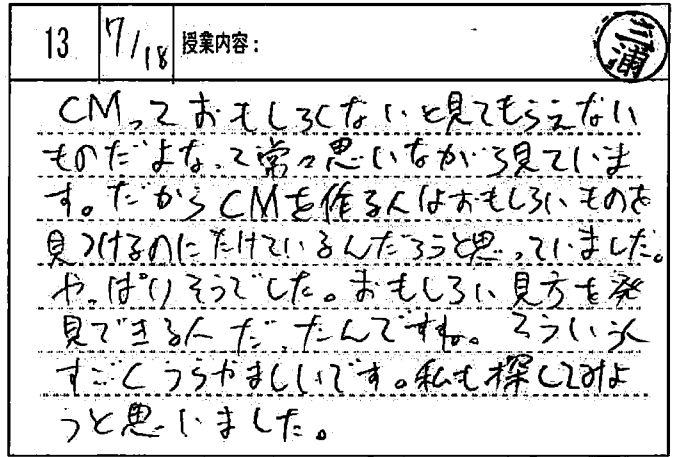 13 7/18 授業内容: 三浦
CMっておもしろくないと見てもらえない
ものだよなって常々思いながら見ていま
す。だからCMを作る人はおもしろいものを
見つけるのにたけているんだろうと思っていました。
やっぱりそうでした。おもしろい見方を発
見できる人だったんですね。そういう人
すごくうらやましいです。私も探してみよ
うと思いました。